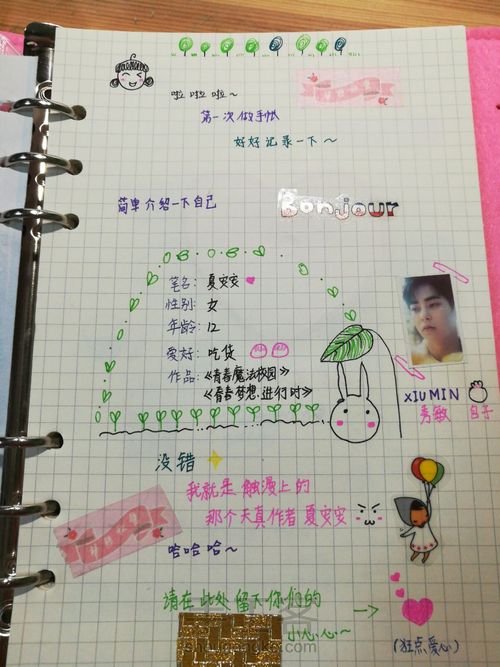 啦啦啦～
第一次做手帐
好好记录一下～
简单介绍一下自己
Bonjour
笔名：夏安安
性别：女
年龄：12
爱好：吃货
作品：《青春魔法校园》
《青春梦想进行时》
XIUMIN
秀敏 包子
没错
我就是触漫上的
那个天真作者夏安安
哈哈哈～
请在此处留下你们的
小心心～
(狂点爱心)